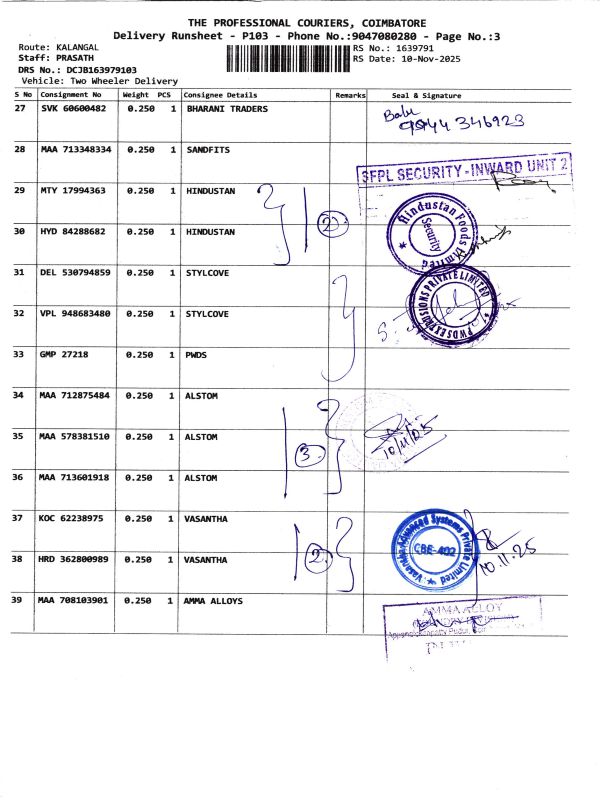 THE PROFESSIONAL COURIERS, COIMBATORE
Delivery Runsheet - P103 - Phone No.:9047080280 - Page No.:3
Route: KALANGAL RS No.: 1639791
Staff: PRASATH RS Date: 10-Nov-2025
DRS No.: DCJB163979103
Vehicle: Two Wheeler Delivery
S No Consignment No Weight PCS Consignee Details Remarks Seal & Signature
27 SVK 60600482 0.250 1 BHARANI TRADERS
Babu
9944 346923
28 MAA 713348334 0.250 1 SANDFITS
SFPL SECURITY - INWARD UNIT 2
29 MTY 17994363 0.250 1 HINDUSTAN
2
Hindustan Foods Limited
Security
30 HYD 84288682 0.250 1 HINDUSTAN
31 DEL 530794859 0.250 1 STYLCOVE
PRIVATE LIMITED
32 VPL 948683480 0.250 1 STYLCOVE
33 GMP 27218 0.250 1 PWDS
34 MAA 712875484 0.250 1 ALSTOM
35 MAA 578381510 0.250 1 ALSTOM
3
10/11/25
36 MAA 713601918 0.250 1 ALSTOM
37 KOC 62238975 0.250 1 VASANTHA
Vasantha Advanced Systems Private Limited
CBE-402
38 HRD 362800989 0.250 1 VASANTHA
2
10.11.25
39 MAA 708103901 0.250 1 AMMA ALLOYS
AMMA ALLOY